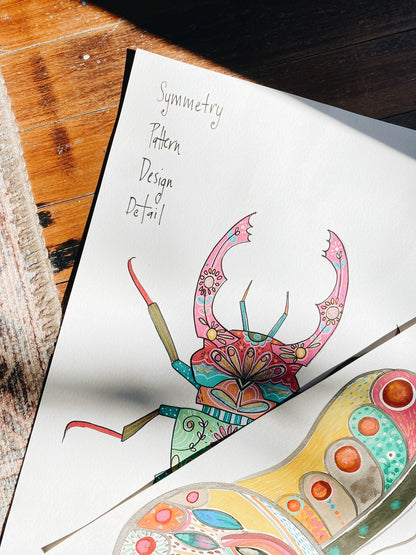 Symmetry
Pattern
Design
Detail